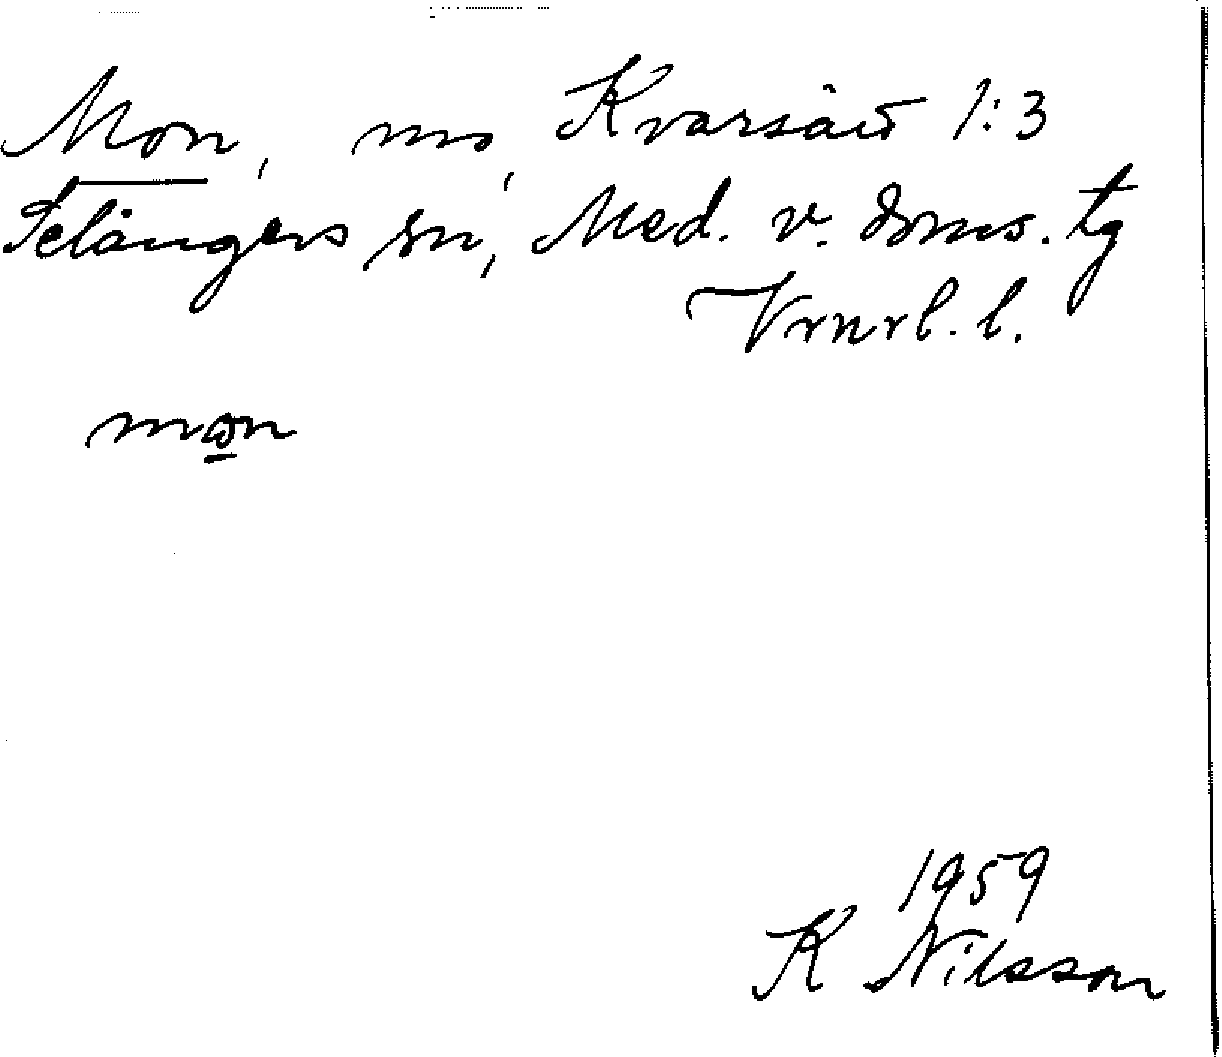 Mon, ms, Kvarsätt 1:3
Selångers sn, Med. v. doms. tg
Vrnrl. l.
mon
1959
K Nilsson